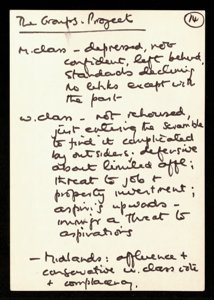 The Groups. Project
14
M.class – depressed, not
confident, left behind,
standards declining
No links except with
the past
W.class – not rehoused,
just entering the scramble
to find it complicated
by outsiders: defensive
about limited affl;
threat to job +
property investment;
aspir's upwards –
immigs a threat to
aspirations
– Midlands: affluence +
conservative w. class vote
+ complacency.